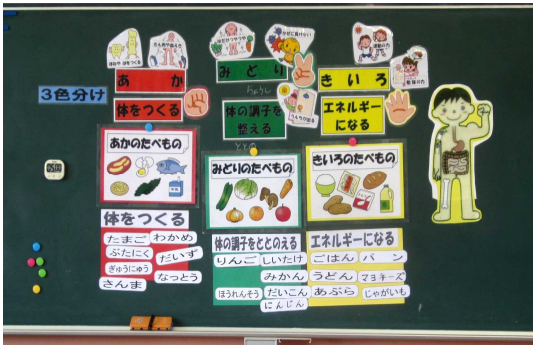 ３色分け
あか
体をつくる
あかのたべもの
体をつくる
たまご
わかめ
ぶたにく
だいず
ぎゅうにゅう
なっとう
さんま
みどり
ちょうし
体の調子を
整える
ととの
みどりのたべもの
体の調子をととのえる
りんご
しいたけ
みかん
ほうれんそう
だいこん
にんじん
きいろ
エネルギー
になる
きいろのたべもの
エネルギーになる
ごはん
パン
うどん
マヨネーズ
あぶら
じゃがいも